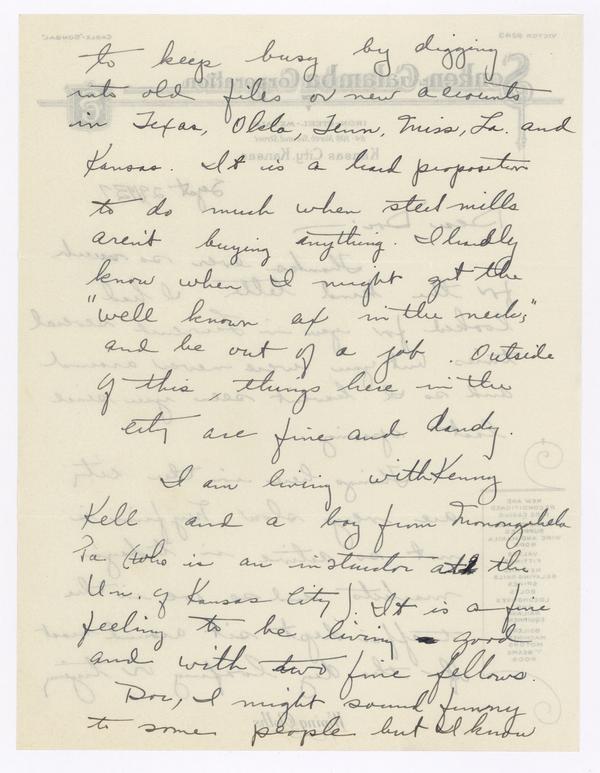 to keep busy by digging
into old files or new accounts
in Texas, Okla, Tenn, Miss, La. and
Kansas. It is a hard proposition
to do much when steel mills
aren't buying anything. I hardly
know when I might get the
"well known ax in the neck,"
and be out of a job. Outside
of this, things here in the
city are fine and dandy.
I am living with Kenny
Kell and a boy from Monongahela
Pa. (who is an instructor at the
Un. of Kansas City). It is a fine
feeling to be living good
and with two fine fellows.
Doc, I might sound funny
to some people but I know